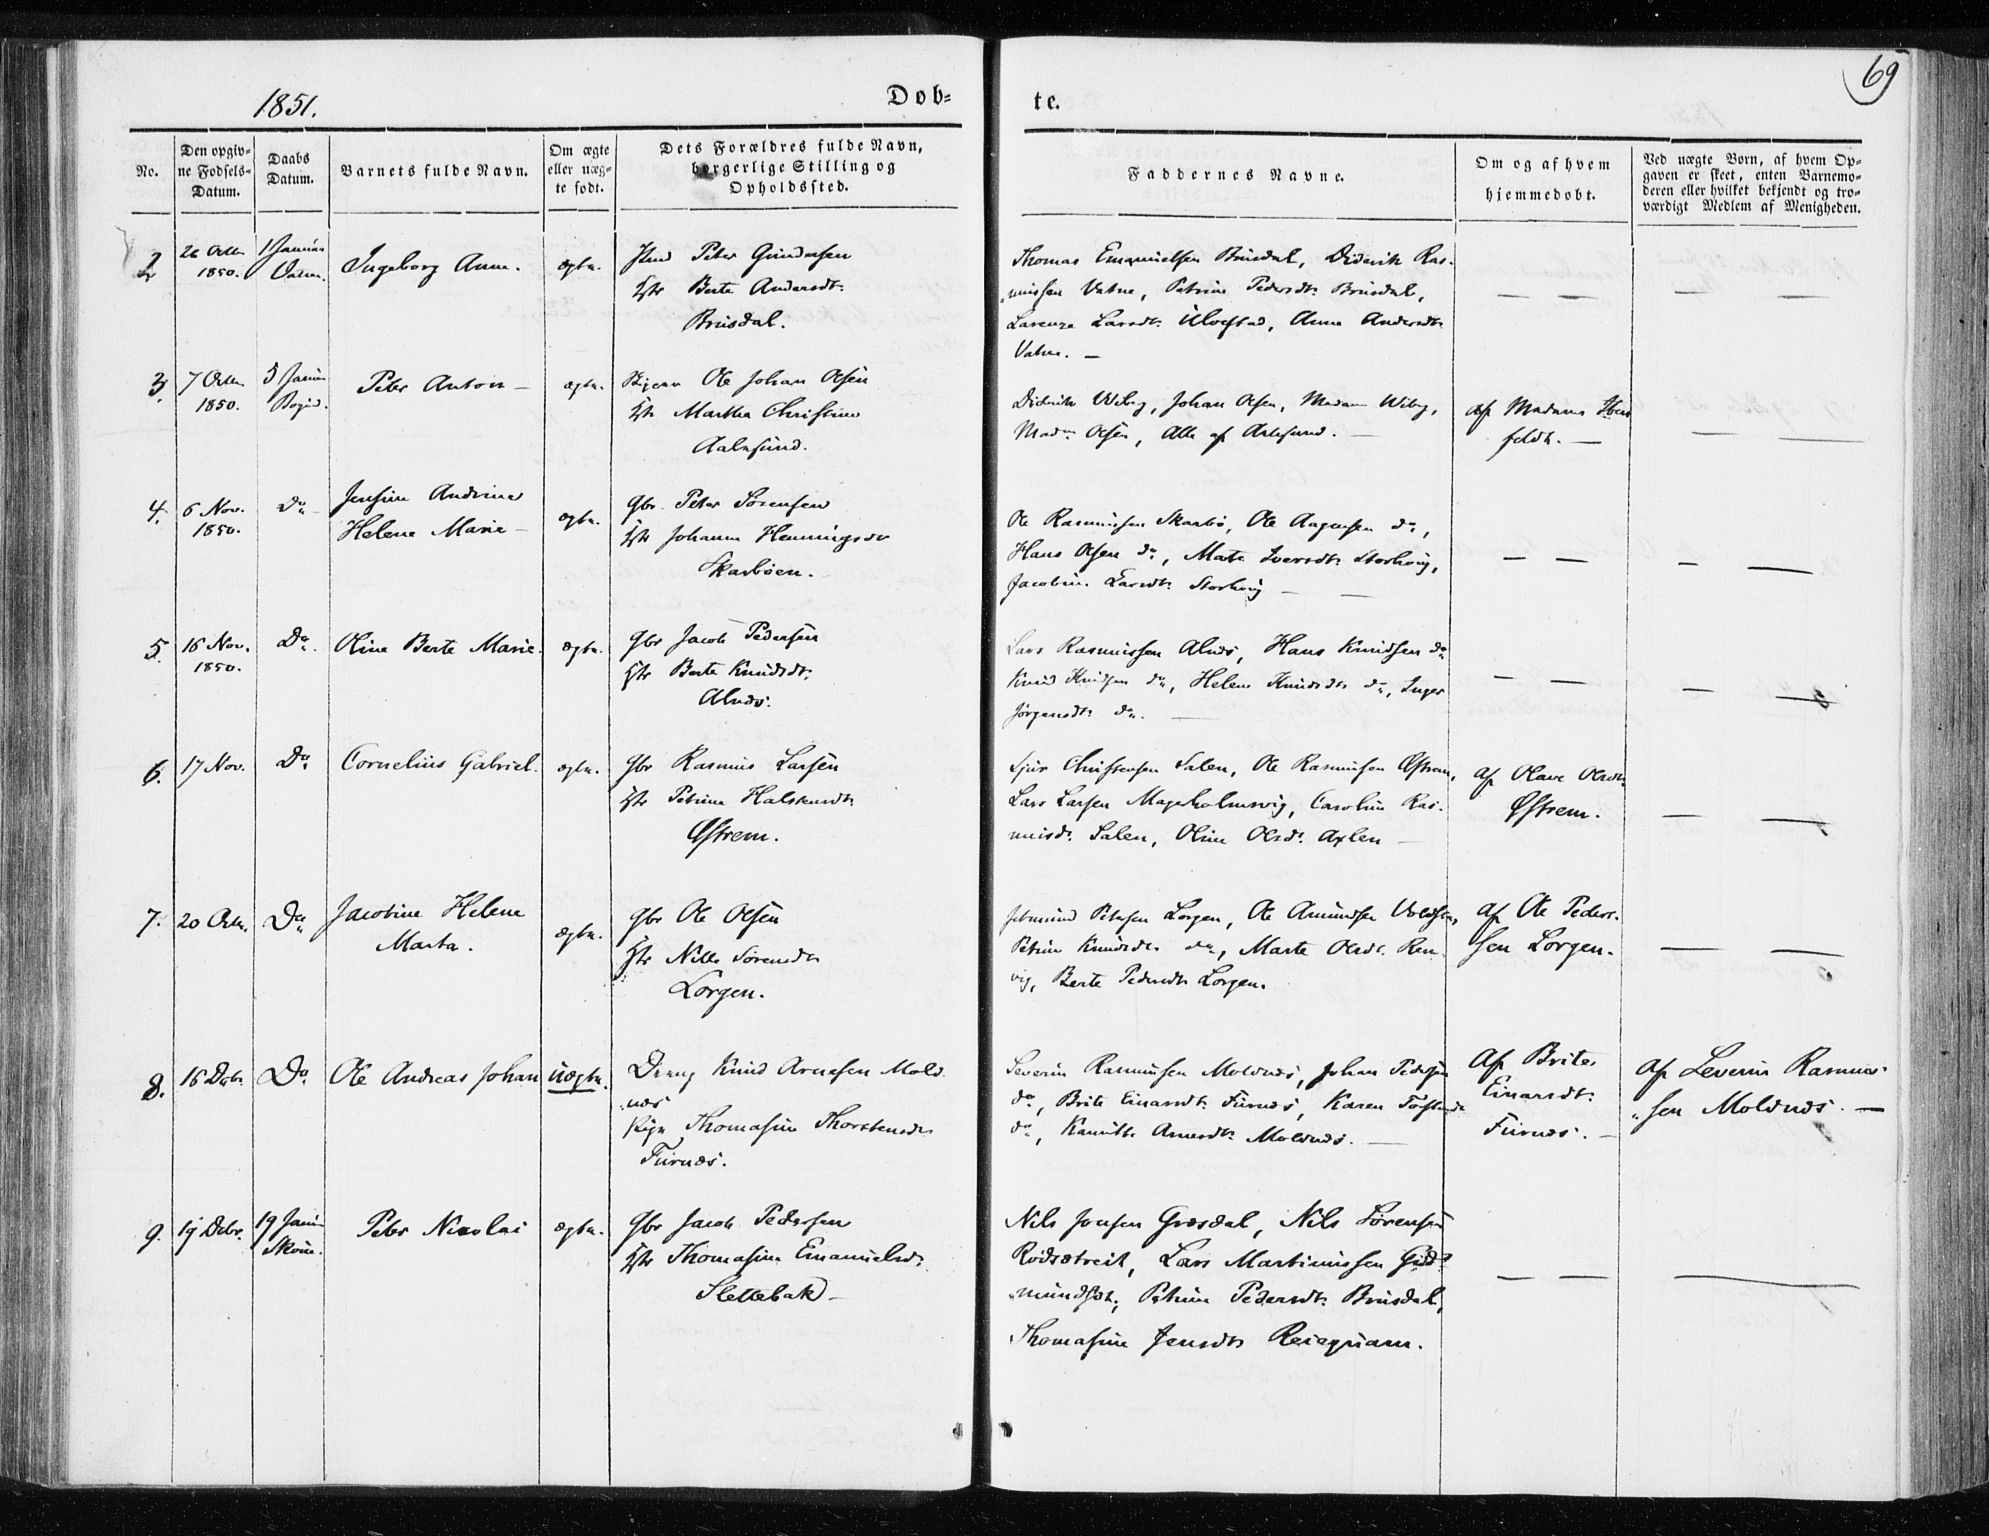 1851.
Døb-
te.
69
No.
Den opgiv-
ne Fødsels-
Datum.
Daabs
Datum.
Barnets fulde Navn.
Om ægte
eller uæg-
te født.
Dets Forældres fulde Navn,
borgerlige Stilling og
Opholdssted.
Faddernes Navne.
Om og af hvem
hjemmedøbt.
Ved uægte Børn, af hvem Op-
gaven er skeet, enten Barnemo-
deren eller hvilket bekjendt og tro-
værdigt Medlem af Menigheden.
2
26 Octbr
1850.
1 Januar
Vatne.
Ingeborg Anne.
ægte.
Peter Gundersen
Berte Andersdtr
Brusdal.
Thomas Emanuelsen Brusdal, Diderik Ras-
mussen Vatne, Petrine Pedersdtr Brusdal,
Larsdtr Ulvestad, Anne Andersdtr
Vatne. —
3.
7 Octbr
1850.
5 Januar
Borgd.
Peter Anton —
ægte.
Ole Johan Olsen
Martha Christine
Aalesund.
Diderik Wiby, Johan Olsen, Madam Wiby,
Madm Olsen, Alle af Aalesund. —
af Madame
feldt. —
4.
6 Nov.
1850.
Do
Jensine Andrine
Helene Marie —
ægte.
Gbr. Peter Sørensen
Johanne Hemmingsdr
Skarbøen.
Ole Rasmussen Skarbø, Ole Aagesen do,
Hans Olsen do, Marte Iversdtr Storhoug,
Jacobine Larsdtr Storhoug —
5.
16 Nov.
1850.
Do
Oline Berte Marie.
ægte.
Gbr Jacob Pedersen
Berte Knudsdtr
Alnæs.
Lars Rasmussen Alnæs, Hans Knudsen do
Knud Knudsen do, Helene Knudsdtr do, Inger
Jørgensdtr do. —
6.
17 Nov.
Do
Cornelius Gabriel.
ægte.
Gbr Rasmus Larsen
Petrine Halstensdtr
Østrem.
Sjur Christensen Salen, Ole Rasmussen Østrem,
Lars Larsen Mageholmsvig, Caroline Ras-
musdr Salen, Oline Olsdr Axlen —
af Olave Olsdtr
Østrem.
7.
20 Octbr.
Do
Jacobine Helene
Marta.
ægte.
Gbr Ole Olsen
Nille Sørensdtr
Lorgen.
Petersen Lorgen, Ole Amundsen
Petrine Knudsdtr do, Marte Olsdtr Ren-
vig, Berte Pedersdtr Lorgen.
af Ole Peder-
sen Lorgen.
8.
16 Dcbr.
Do
Ole Andreas Johan
uægte.
Dreng Knud Arnesen Mold-
næs
Pige Thomasine Thorstensdr
Furnæs.
Severin Rasmussen Moldnæs, Johan Pedersen
do, Brite Einarsdtr Furnæs, Karen
do, Arnesdtr Moldnæs. —
af Brite
Einarsdtr
Furnæs. —
af Severin Rasmus-
sen Moldnæs. —
9.
19 Dcbr.
19 Januar
Skoue.
Peter Nicolai
ægte.
Gbr Jacob Pedersen
Thomasine Emanuelsdr
Slettebak —
Nils Jonsen Græsdal, Nils Sørensen
Rødsætreit, Lars Martinussen Gud-
mundset, Petrine Pedersdtr Brusdal,
Thomasine Jensdtr Reiaquam.